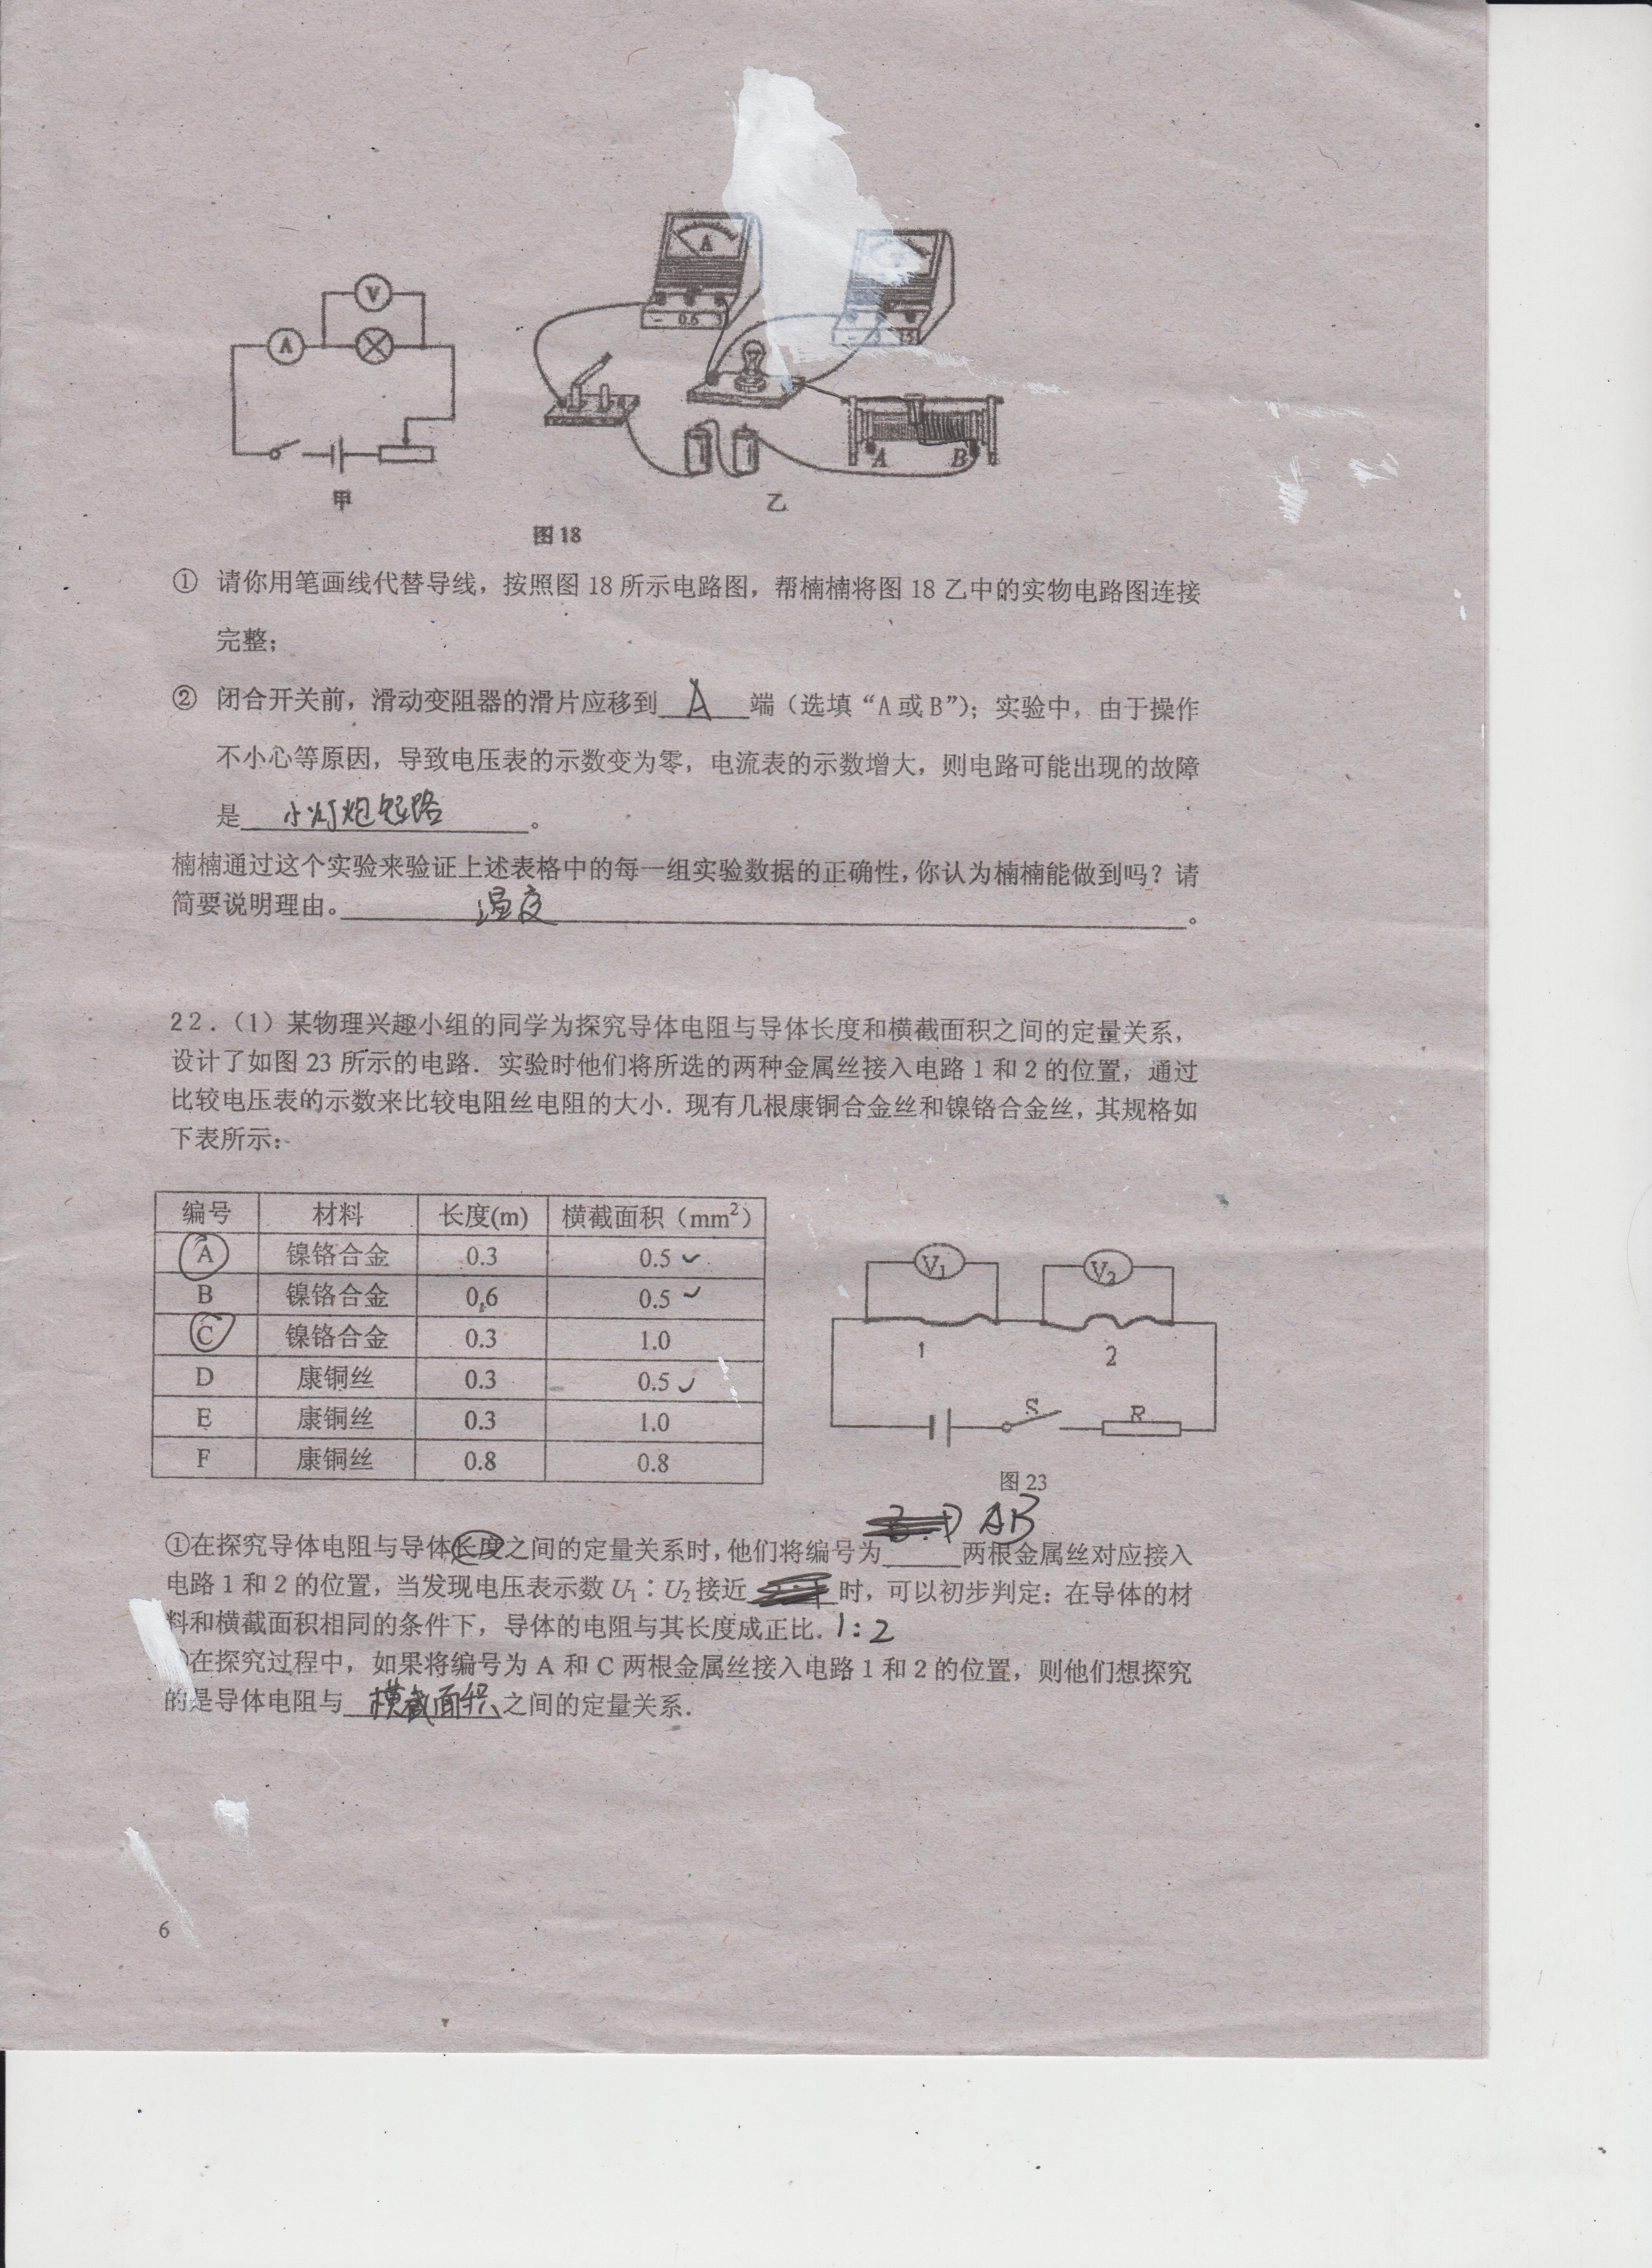 A
V
V
A
- 0.6 3
- 3 15
A B
甲
乙
图 18
① 请你用笔画线代替导线，按照图 18 所示电路图，帮楠楠将图 18 乙中的实物电路图连接
完整；
② 闭合开关前，滑动变阻器的滑片应移到 A 端（选填“A或B”）；实验中，由于操作
不小心等原因，导致电压表的示数变为零，电流表的示数增大，则电路可能出现的故障
是 小灯炮短路 。
楠楠通过这个实验来验证上述表格中的每一组实验数据的正确性，你认为楠楠能做到吗？请
简要说明理由。 温度 。
22．（1）某物理兴趣小组的同学为探究导体电阻与导体长度和横截面积之间的定量关系，
设计了如图 23 所示的电路．实验时他们将所选的两种金属丝接入电路 1 和 2 的位置，通过
比较电压表的示数来比较电阻丝电阻的大小．现有几根康铜合金丝和镍铬合金丝，其规格如
下表所示：
编号 材料 长度(m) 横截面积（mm²）
A 镍铬合金 0.3 0.5
B 镍铬合金 0.6 0.5
C 镍铬合金 0.3 1.0
D 康铜丝 0.3 0.5
E 康铜丝 0.3 1.0
F 康铜丝 0.8 0.8
V₁ V₂
1 2
S R
图 23
AB
①在探究导体电阻与导体长度之间的定量关系时，他们将编号为 两根金属丝对应接入
电路 1 和 2 的位置，当发现电压表示数 U₁∶U₂接近 时，可以初步判定：在导体的材
料和横截面积相同的条件下，导体的电阻与其长度成正比． 1:2
在探究过程中，如果将编号为 A 和 C 两根金属丝接入电路 1 和 2 的位置，则他们想探究
的是导体电阻与 横截面积 之间的定量关系．
6